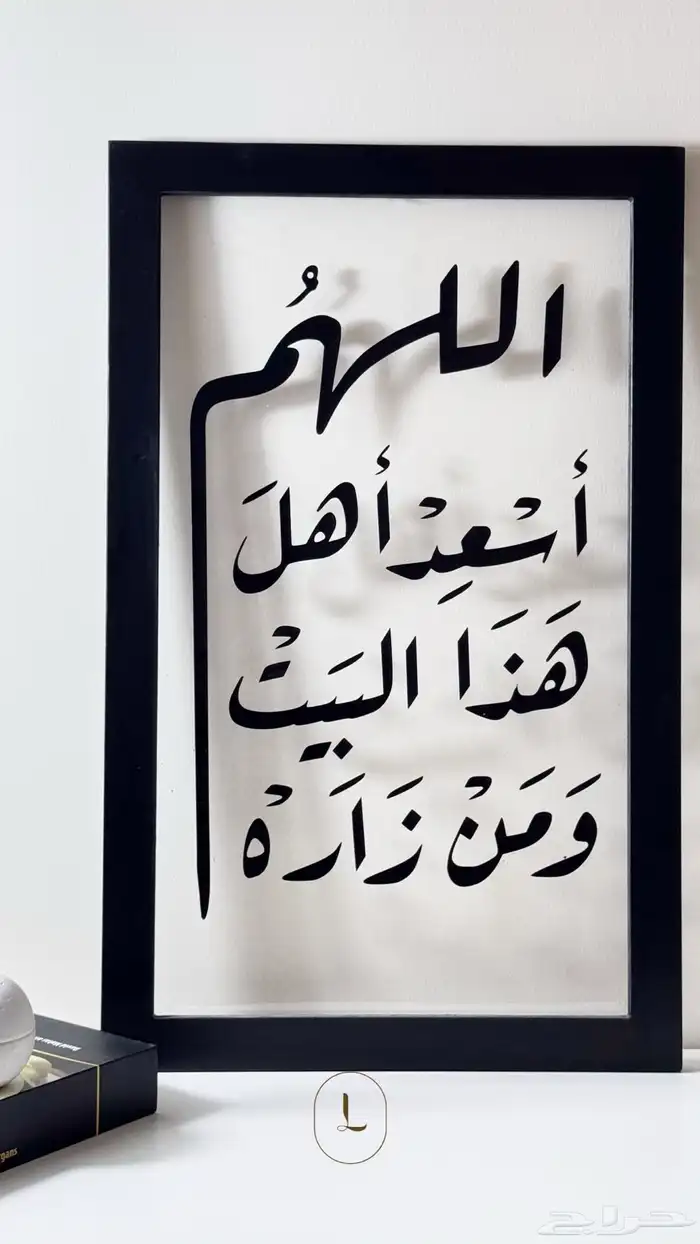 اللهُم
أسْعِدْ أهلَ
هَذَا البَيتْ
وَمَنْ زَارَهْ
L
حراج